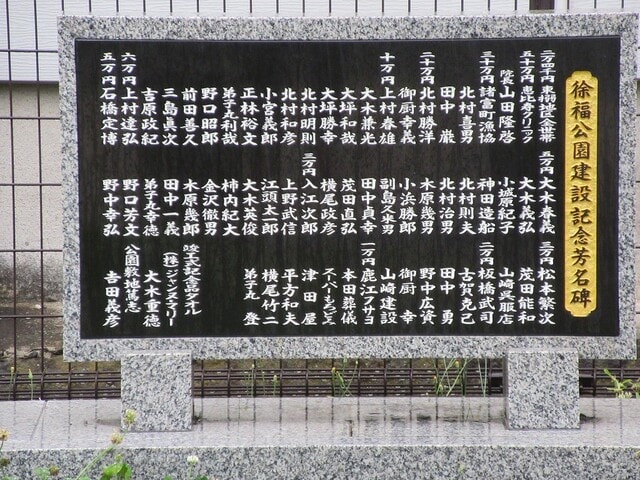 徐福公園建設記念芳名碑
東搦地区全世帯
五十万円 恵比寿クリニック
院長 山田隆啓
三十万円 諸富町漁協
北村喜男
田中 巌
二十万円 北村勝洋
御厨幸義
十万円 上村春雄
大木兼光
大坪和哉
大坪勝幸
北村明則
北村和彦
小宮義郎
正林裕文
弟子丸利哉
野口昭郎
前田善久
三島眞次
吉原政紀
六万円 上村達弘
五万円 石橋定博
五万円 大木春義
大木義弘
小城原紀子
神田造船
北村則夫
北村治男
木原幾男
小浜勝郎
副島久米男
田中貞幸
茂田直弘
横尾政彦
三万円 入江次郎
上野武信
江頭太一郎
大木英俊
柿内紀大
金沢徹男
木原幾郎
田中一義
弟子丸幸徳
野口芳文
野中幸弘
三万円 松本繁次
茂田能和
山崎呉服店
二万円 板橋武司
古賀克己
田中 勇
野中広資
御厨 幸
山崎建設
一万円 鹿江フサヨ
本田葬儀
スーパーもろどみ
津田屋
平方和夫
横尾竹二
弟子丸 登
竣工式記念品タオル
(株)ジャンヌマリー
大木重徳
公園敷地篤志
吉田義彦